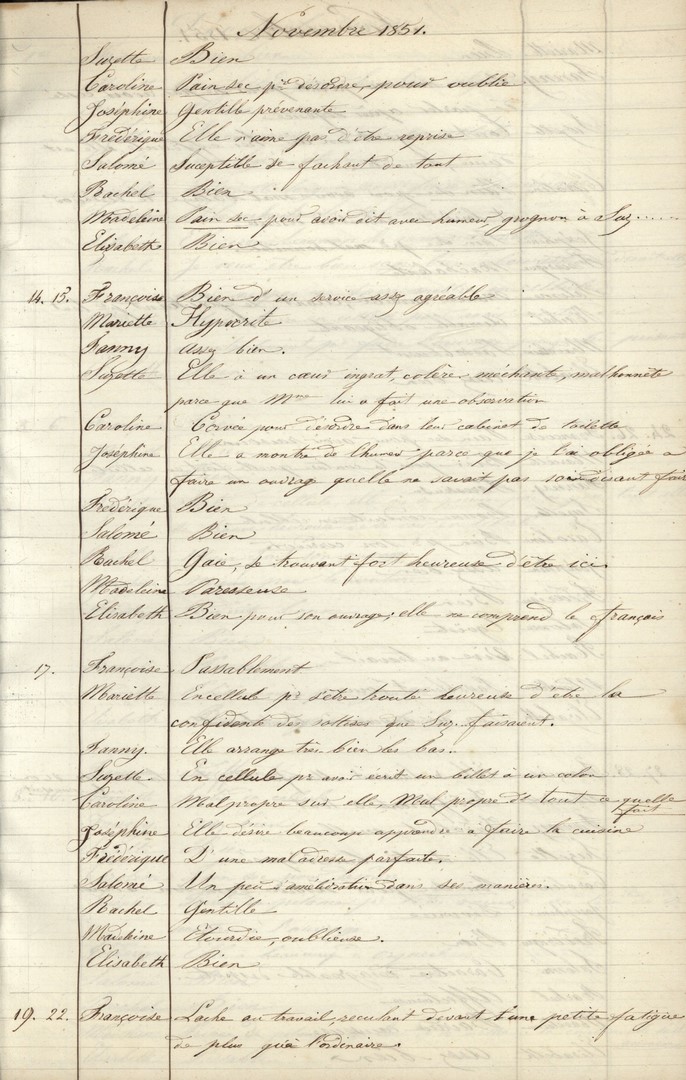 Novembre 1851.
Suzette Bien
Caroline Pain sec pr désordre, pour oublie
Joséphine Gentille prévenante
Frédérique Elle n'aime pas d'être reprise
Salomé Suceptible se fachant de tout
Rachel Bien
Madeleine Pain sec pour avoir dit avec humeur, grognon à Suz.....
Elisabeth Bien
14. 15. Françoise Bien d'un service assez agréable
Mariette Hypocrite
Fanny assez bien.
Suzette Elle à un cœur ingrat, colère méchante, malhonnête
parce que Mme lui a fait une observation
Caroline Corvée pour désordre dans leur cabinet de toilette
Joséphine Elle a montré de l'humeur parce que je l'ai obligée a
faire un ouvrage quelle ne savait pas soi disant fair
Frédérique Bien
Salomé Bien
Rachel Gaie, se trouvant fort heureuse d'être ici.
Madeleine Paresseuse
Elisabeth Bien pour son ouvrage, elle ne comprend le français
17. Françoise Passablement
Mariette En cellule pr s'être trouvé heureuse d'être la
confidente des sottises que Suz. faisaient.
Fanny. Elle arrange très bien les bas..
Suzette. En cellule pr avoir écrit un billet à un colon
Caroline Malpropre sur elle, Mal propre ds tout ce quelle
fait
Joséphine Elle désire beaucoup apprendre a faire la cuisine
Frédérique D'une maladresse parfaite.
Salomé Un peu d'amélioration dans ses manières.
Rachel Gentille
Madeleine Etourdie, oublieuse.
Elisabeth Bien
19. 22. Françoise Lache au travail, reculant devant une petite fatigue
de plus qu'à l'ordinaire.